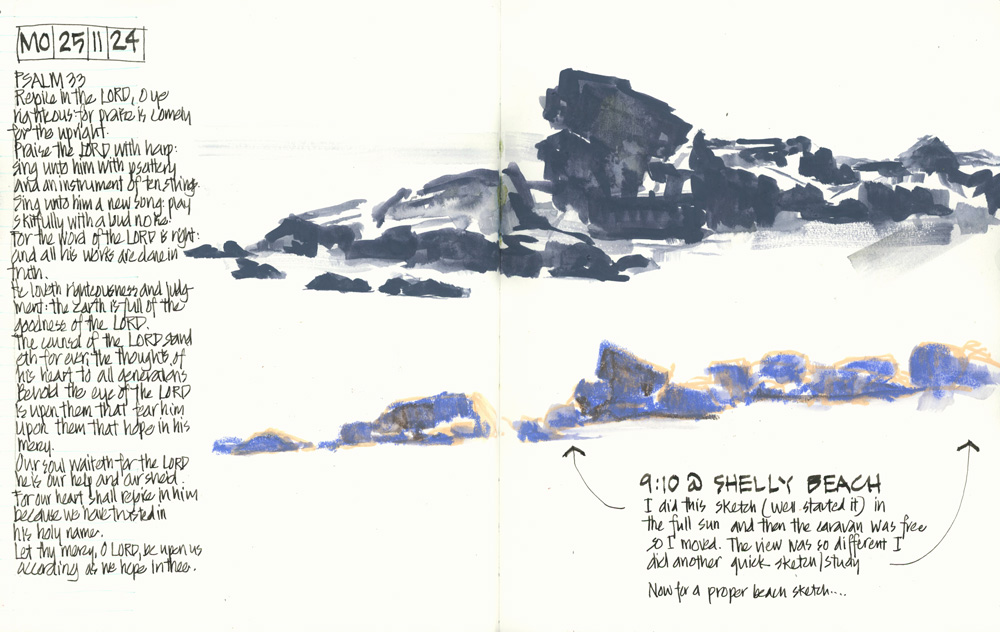 MO 25 11 24
PSALM 33
Rejoice in the LORD, O ye
righteous for praise is comely
for the upright.
Praise the LORD with harp:
sing unto him with psaltery
and an instrument of ten strings.
Sing unto him a new song: play
skilfully with a loud noise.
For the word of the LORD is right:
and all his works are done in
truth.
He loveth righteousness and judg-
ment: the earth is full of the
goodness of the LORD.
The counsel of the LORD stand
eth for ever: the thoughts of
his heart to all generations
Behold the eye of the LORD
is upon them that fear him
upon them that hope in his
mercy.
Our soul waiteth for the LORD
he is our help and our shield.
For our heart shall rejoice in him
because we have trusted in
his holy name.
Let thy mercy, O LORD, be upon us
according as we hope in thee.
9:10 @ SHELLY BEACH
I did this sketch (well started it) in
the full sun and then the caravan was free
so I moved. The view was so different I
did another quick sketch/study
Now for a proper beach sketch....